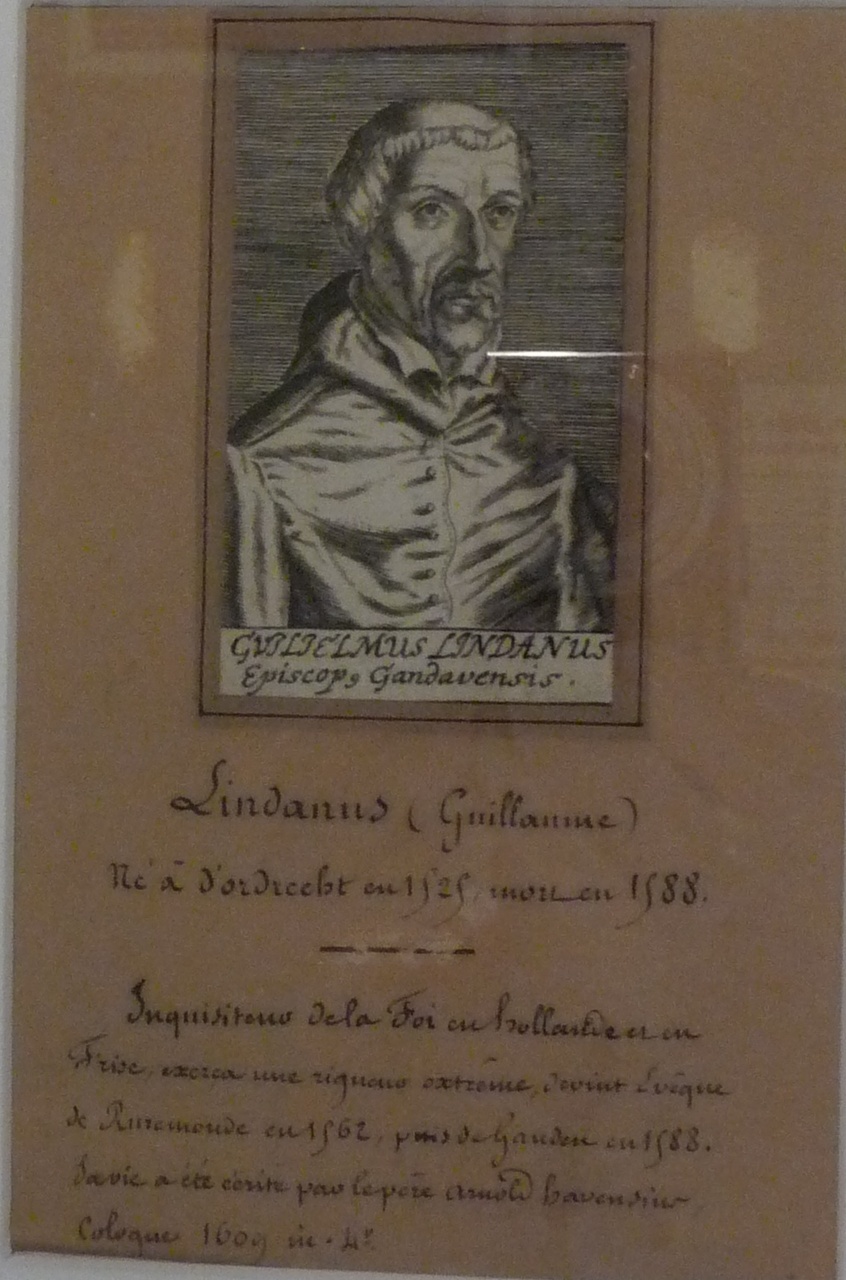 GVILIELMUS LINDANUS
Episcopꝰ Gandavensis.
Lindanus (Guillaume)
Né à d'ordrecht en 1525, mort en 1588.
Inquisiteur de la Foi en hollande et en
Frise, exerça une rigueur extrême, devint Évêque
de Ruremonde en 1562, puis de Gand en 1588.
Sa vie a été écrite par le père Arnold havensius,
Cologne 1609 in-4º